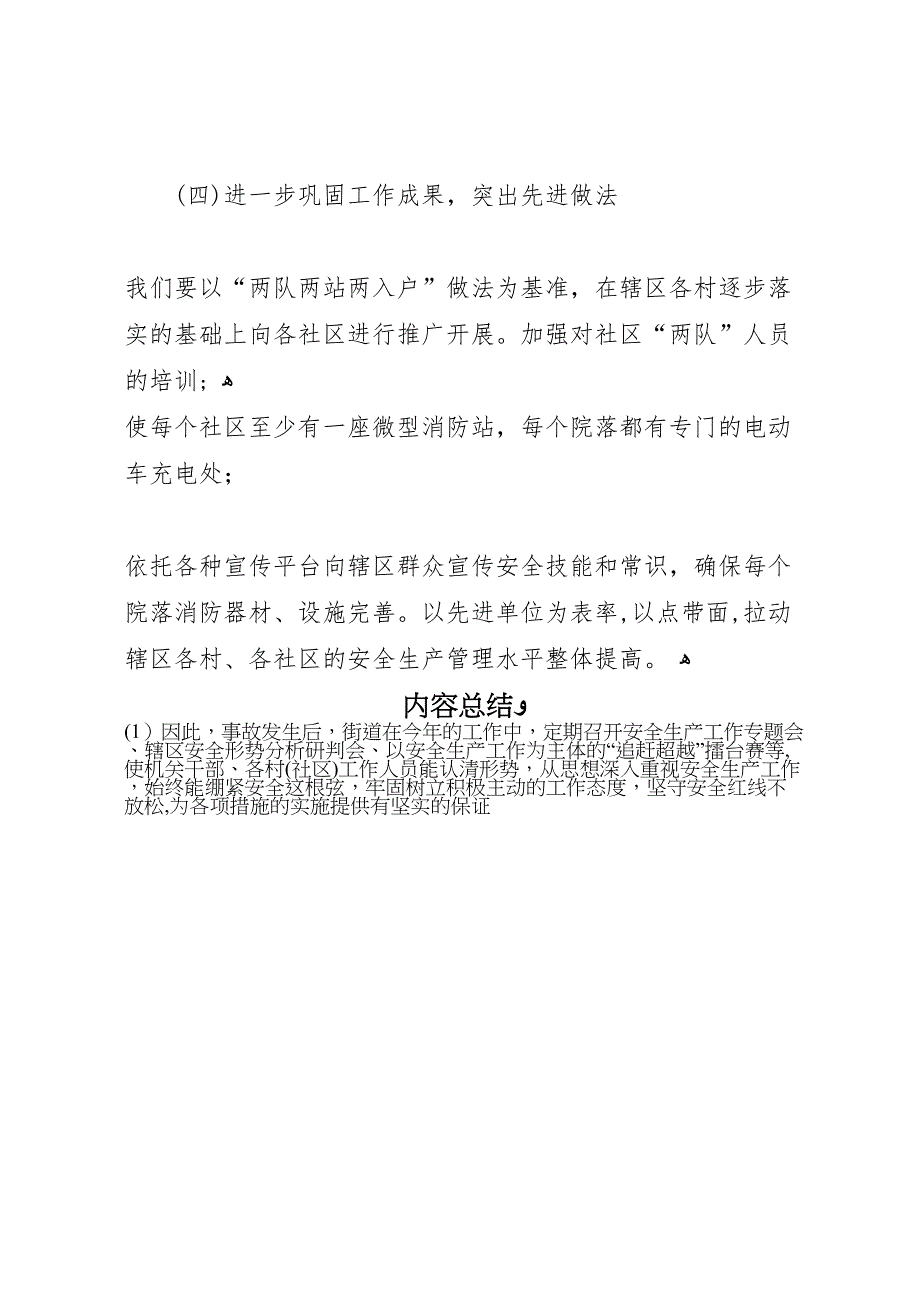 (四)进一步巩固工作成果，突出先进做法
我们要以“两队两站两入户”做法为基准，在辖区各村逐步落
实的基础上向各社区进行推广开展。加强对社区“两队”人员
的培训；ﻫ
使每个社区至少有一座微型消防站，每个院落都有专门的电动
车充电处；
依托各种宣传平台向辖区群众宣传安全技能和常识，确保每个
院落消防器材、设施完善。以先进单位为表率,以点带面,拉动
辖区各村、各社区的安全生产管理水平整体提高。ﻫ
内容总结ﻭ
(1）因此，事故发生后，街道在今年的工作中，定期召开安全生产工作专题会
、辖区安全形势分析研判会、以安全生产工作为主体的“追赶超越”擂台赛等,
使机关干部、各村(社区)工作人员能认清形势，从思想深入重视安全生产工作
，始终能绷紧安全这根弦，牢固树立积极主动的工作态度，坚守安全红线不
放松,为各项措施的实施提供有坚实的保证